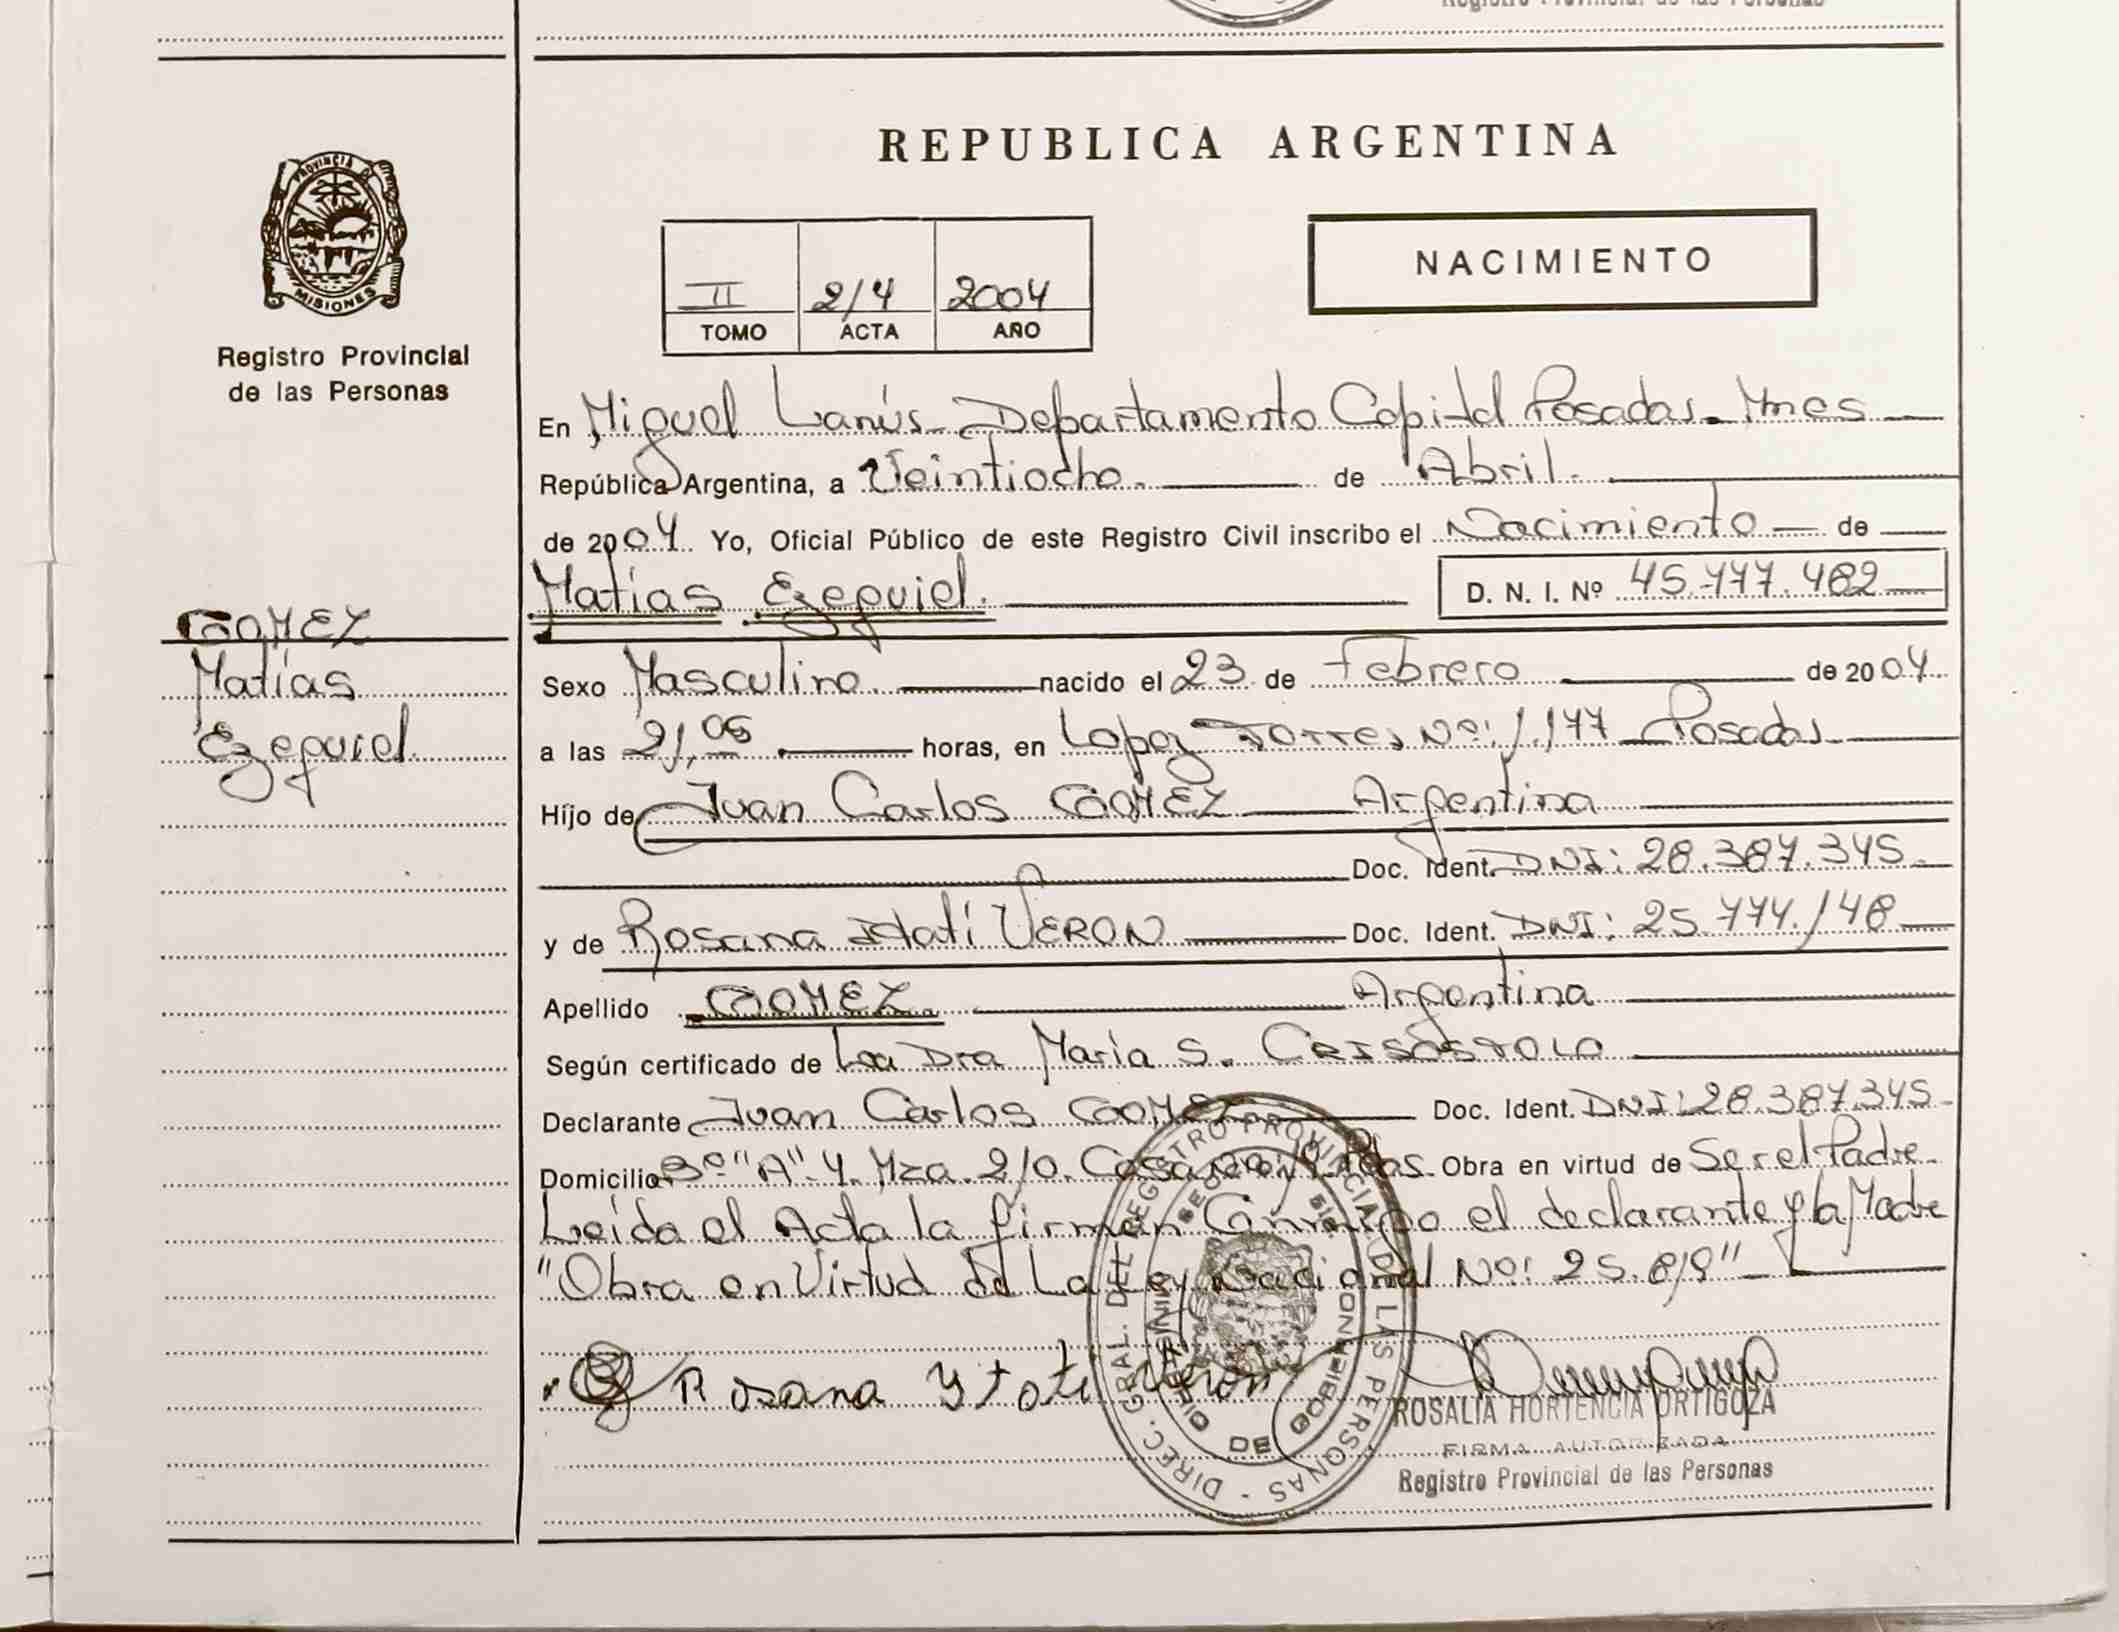 REPUBLICA ARGENTINA
PROVINCIA DE MISIONES
Registro Provincial
de las Personas
NACIMIENTO
II 214 2004
TOMO ACTA AÑO
En Miguel Lanús - Departamento Capital Posadas - Mnes
República Argentina, a Veintiocho. de Abril.
de 2004 Yo, Oficial Público de este Registro Civil inscribo el Nacimiento de
Matías Ezequiel. D. N. I. Nº 45.777.482
GOMEZ
Matías
Ezequiel.
Sexo Masculino. nacido el 23 de Febrero de 2004.
a las 21,05 horas, en Lopez Torres Nº: 1.177 Posadas
Hijo de Juan Carlos GOMEZ Argentina
Doc. Ident. DNI: 28.387.345.
y de Rosana Itatí VERON Doc. Ident. DNI: 25.777.148
Apellido GOMEZ Argentina
Según certificado de La Dra María S.
Declarante Juan Carlos GOMEZ Doc. Ident. DNI: 28.387.345
Domicilio Bº "A" 4. Mza. 210. Casa Pdas. Obra en virtud de Ser el Padre
Leída el Acta la firman Conmigo el declarante y la Madre
"Obra en Virtud de La Ley Nacional Nº: 25.819"
Rosana Ytati Veron
DIREC. GRAL. DEL REGISTRO PROVINCIAL DE LAS PERSONAS
ROSALIA HORTENCIA ORTIGOZA
FIRMA AUTORIZADA
Registro Provincial de las Personas